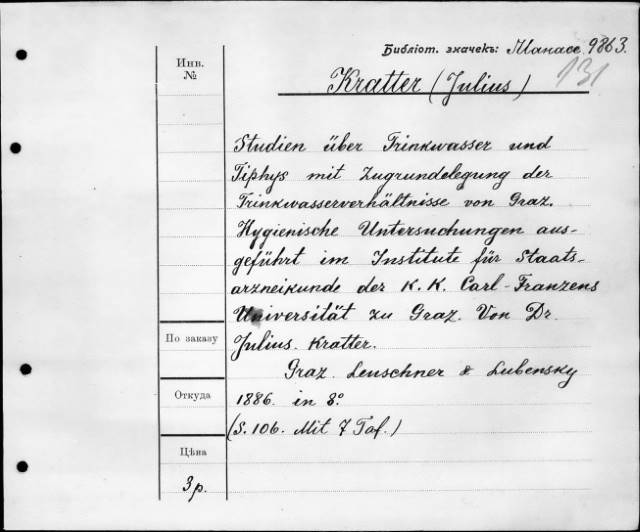 Библіот. значекъ: Шанасс. 9863.
131
Инв.
№
Kratter (Julius)
Studien über Trinkwasser und
Tiphys mit Zugrundelegung der
Trinkwasserverhältnisse von Graz.
Hygienische Untersuchungen aus-
geführt im Institute für Staats-
arzneikunde der K. K. Carl-Franzens
Universität zu Graz. Von Dr.
По заказу
Julius Kratter.
Graz. Leuschner & Lubensky
Откуда
1886. in 8°
(S. 106. Mit 7 Taf.)
Цѣна
3 р.